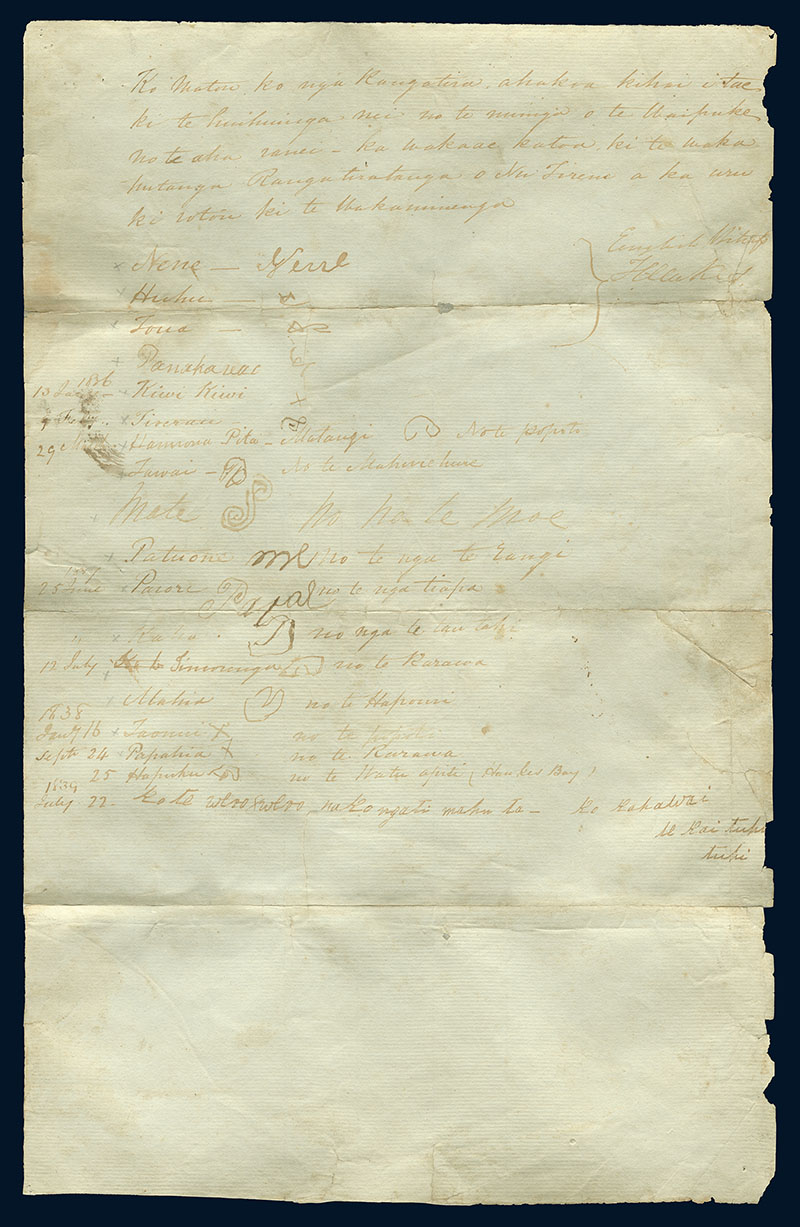 Ko matou ko nga Rangatira, ahakoa kihai i tae
ki te huihuinga nei no te nuinga o te Waipuke
no te aha ranei – ka wakaae katoa ki te waka
putanga Rangatiratanga o Nu Tirene a ka uru
ki roto ki te Wakaminenga
English Witness
Nene –
Huhu –
Tona –
Panakareao
1836
13 Kiwi Kiwi
9 Tirarau
29 Hamurona Pita – Matangi No te popoto
Tawai – No te Mahurehure
Mate
Patuone no te nga te Rangi
1837
25 June Parore no te nga tiapa
" no nga te
12 July Te Kara no te Rarawa
Mahia no te Hapouri
1838
Jany 16 Taonui no te popoto
Septr 24 Papahia no te Rarawa
25 Hapuku no te Watu apiti (Hawkes Bay)
1839
July 22. Ko te wEro wEro, na Ko ngati mahu ta – ko Kahawai
te Kai tuhi
tuhi